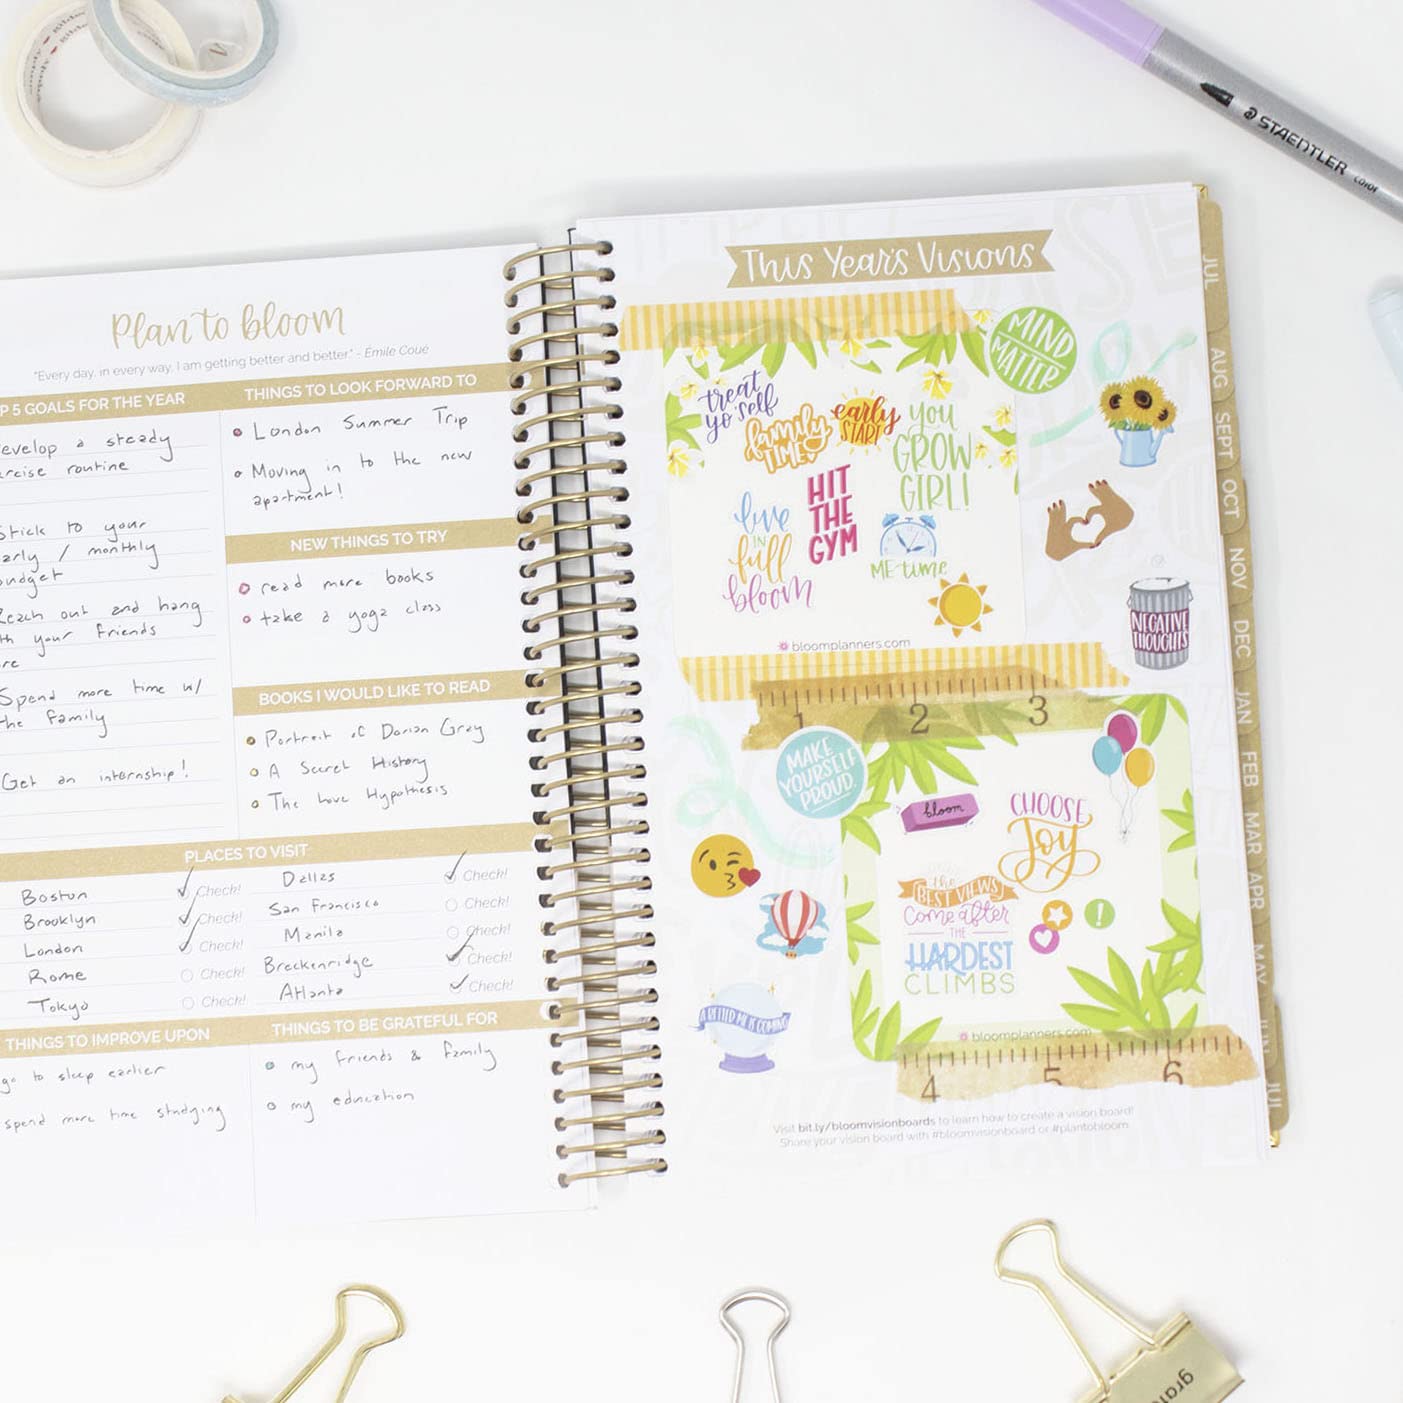 Plan to bloom
"Every day, in every way, I am getting better and better." - Émile Coué
P 5 GOALS FOR THE YEAR
evelop a steady
ercise routine
Stick to your
early / monthly
budget
Reach out and hang
th your friends
re
Spend more time w/
the family
Get an internship!
THINGS TO LOOK FORWARD TO
London Summer Trip
Moving in to the new
apartment!
NEW THINGS TO TRY
read more books
take a yoga class
BOOKS I WOULD LIKE TO READ
Portrait of Dorian Gray
A Secret History
The Love Hypothesis
PLACES TO VISIT
Boston Check!
Brooklyn Check!
London Check!
Rome Check!
Tokyo Check!
Dallas Check!
San Francisco Check!
Manila Check!
Breckenridge Check!
Atlanta Check!
THINGS TO IMPROVE UPON
go to sleep earlier
spend more time studying
THINGS TO BE GRATEFUL FOR
my friends & family
my education
This Year's Visions
MIND
MATTER
treat
yo'self
family
TIME
early
START
you
GROW
GIRL!
live
IN
full
bloom
HIT
THE
GYM
ME time
bloomplanners.com
NEGATIVE
THOUGHTS
1 2 3
MAKE
YOURSELF
PROUD.
bloom
CHOOSE
Joy
the
BEST VIEWS
Come after
THE
HARDEST
CLIMBS
!
A BETTER ME IS COMING
bloomplanners.com
4 5 6
Visit bit.ly/bloomvisionboards to learn how to create a vision board!
Share your vision board with #bloomvisionboard or #plantobloom
JUL
AUG
SEPT
OCT
NOV
DEC
JAN
FEB
MAR
APR
MAY
JUN
JUL
STAEDTLER
color